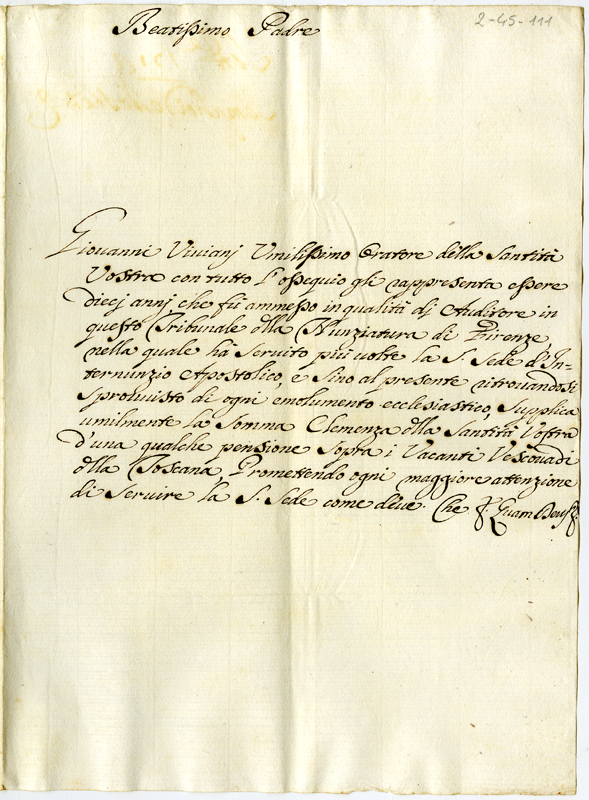 2-45-111
Beatissimo Padre
Giovanni Vivianj Umilissimo Oratore della Santità
Vostra con tutto l'ossequio gli rappresenta essere
diecj annj che fù ammesso in qualità dj Auditore in
questo Tribunale dlla Nunziatura di Firenze,
nella quale hà servito più volte la S. Sede d'In=
ternunzio Apostolico, e sino al presente ritrovandosi
sproluisto di ogni emolumento ecclesiastico, supplica
umilmente la somma Clemenza dlla Santità Vostra
d'una qualche pensione sopra i Vacanti Vescovadi
dlla Toscana, Promettendo ogni maggiore attenzione
di servire la S. Sede come deve. Che